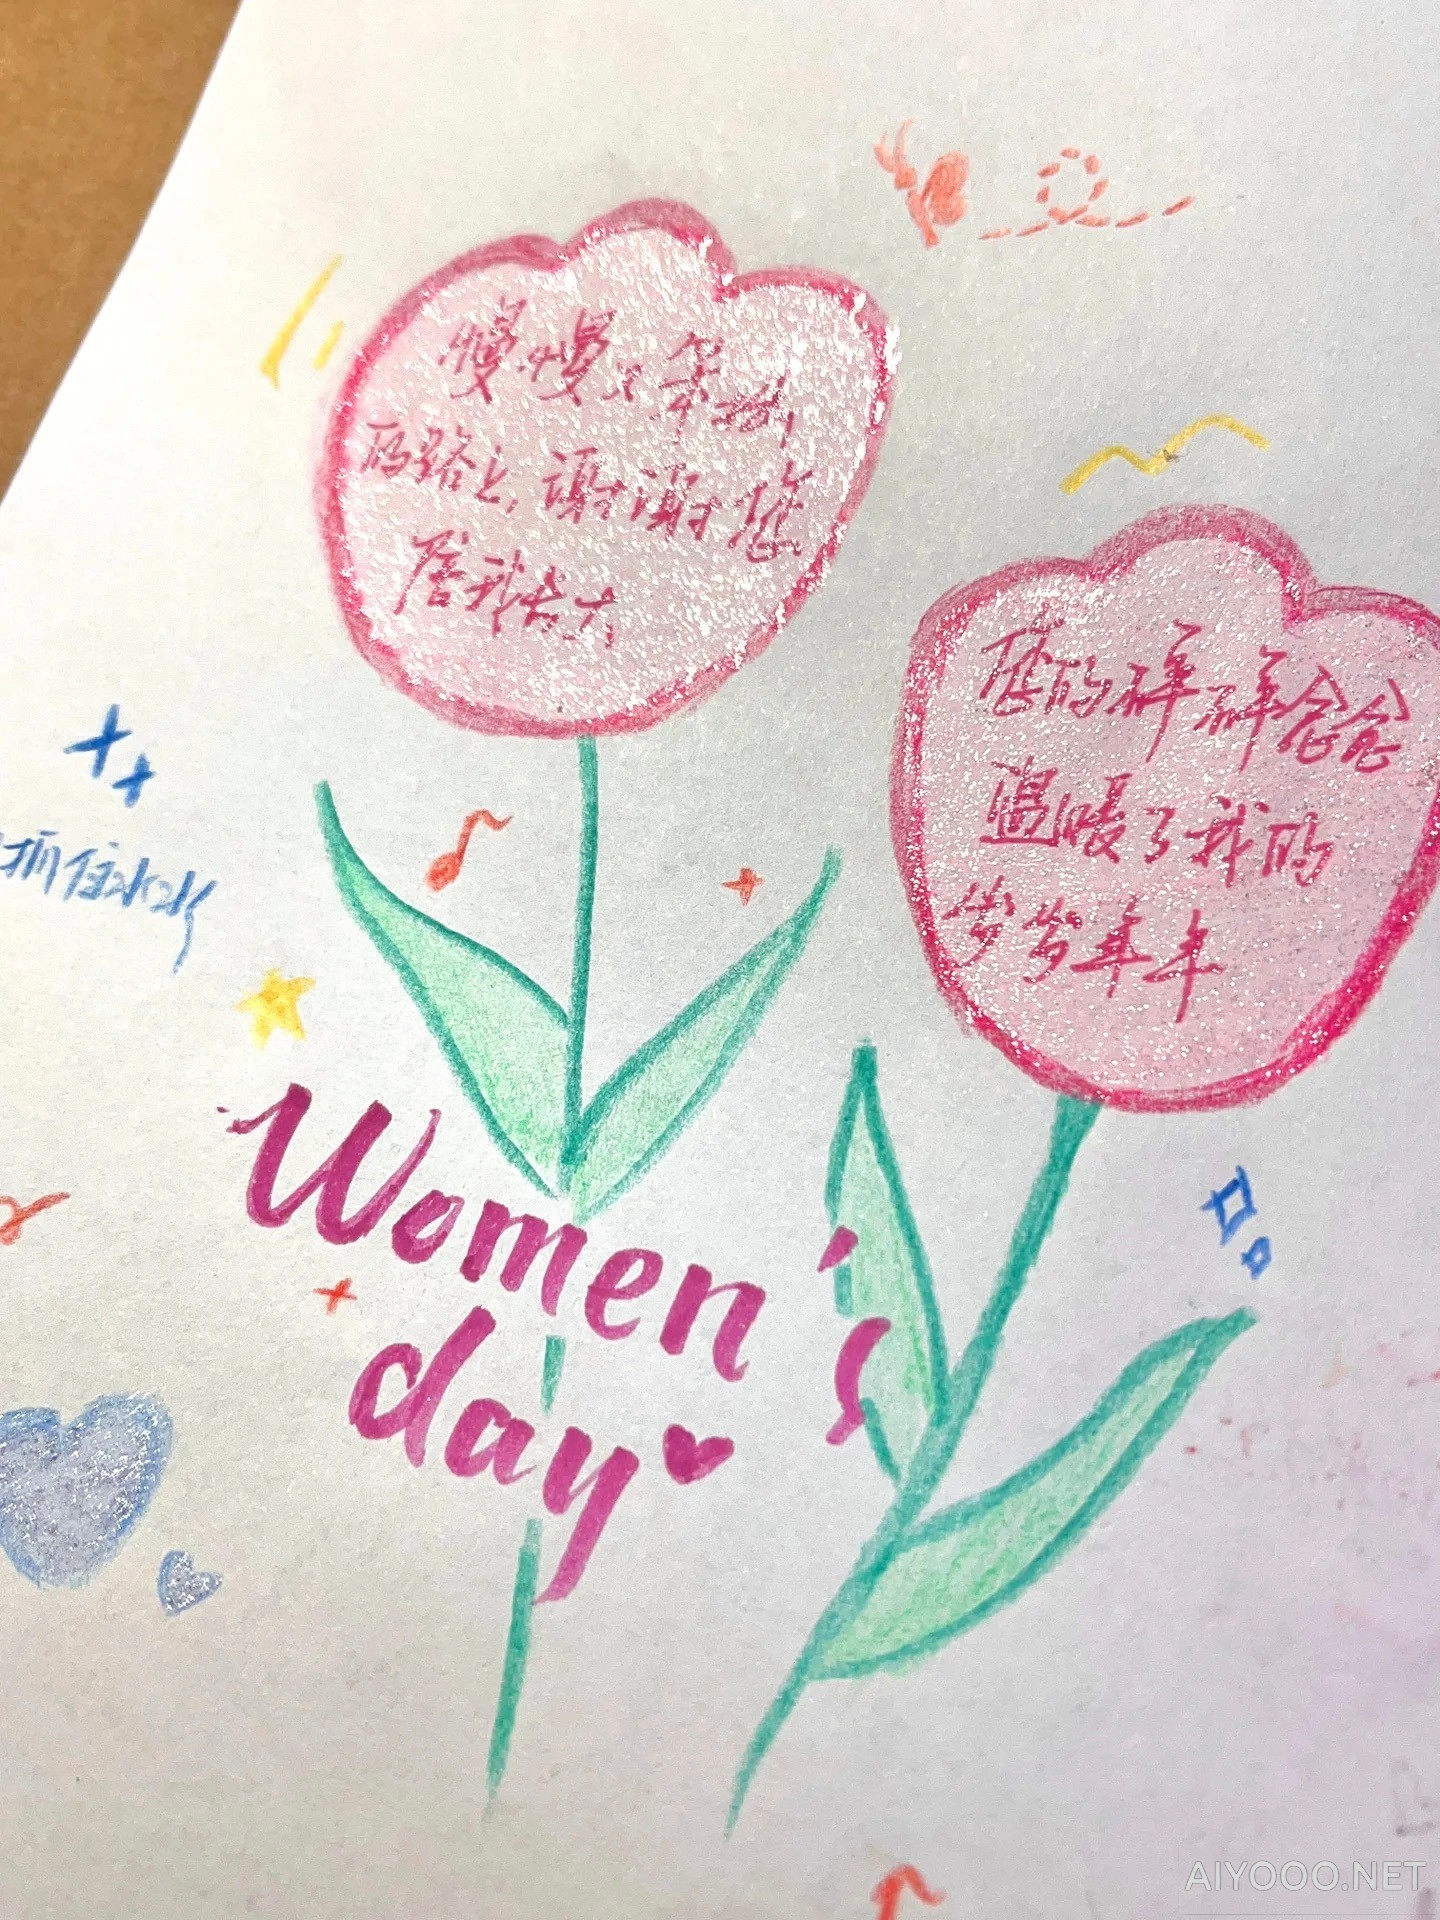 慢慢又笨拙
的路上，谢谢您
陪我长大
您的碎碎念念
温暖了我的
岁岁年年
抓住
Women's
day
AIYOOO.NET